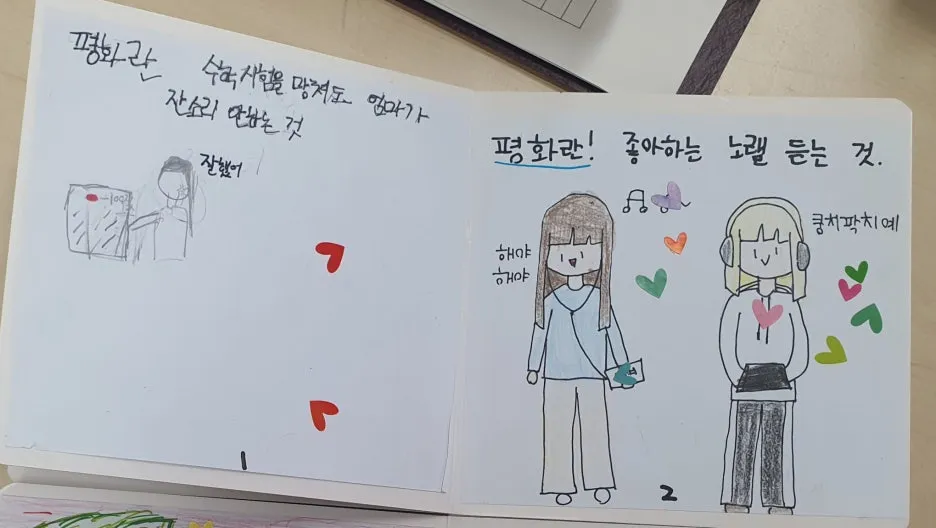 평화란 수학시험을 망쳐도 엄마가
잔소리 안하는 것
잘했어
1
평화란! 좋아하는 노랠 듣는 것.
해야
해야
쿵치팍치예
2